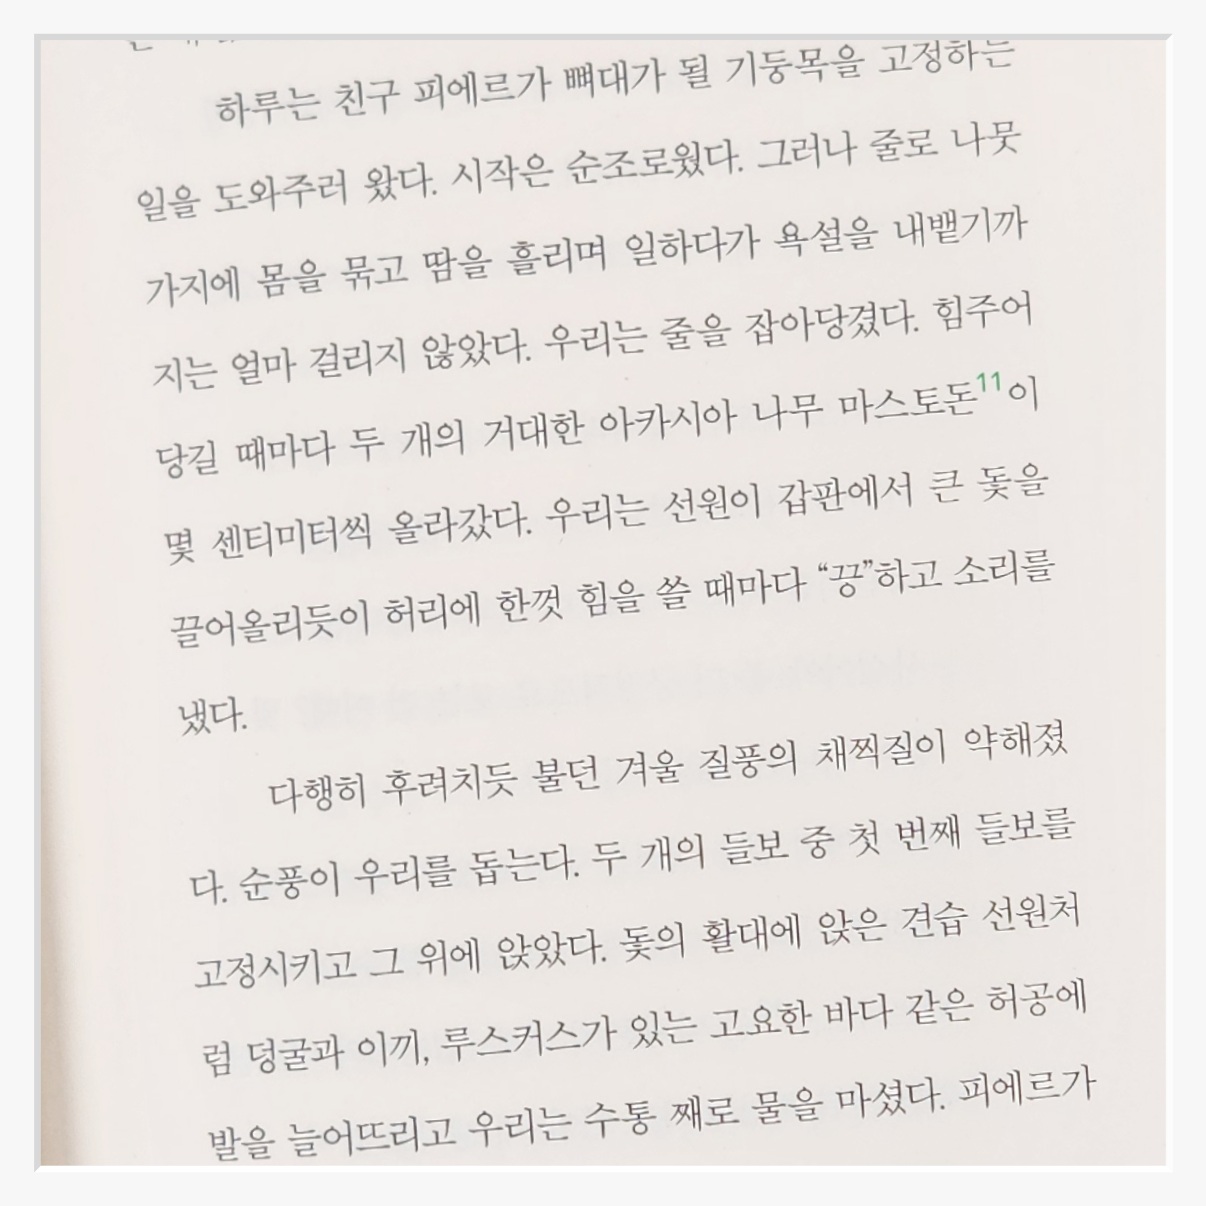 하루는 친구 피에르가 뼈대가 될 기둥목을 고정하는
일을 도와주러 왔다. 시작은 순조로웠다. 그러나 줄로 나뭇
가지에 몸을 묶고 땀을 흘리며 일하다가 욕설을 내뱉기까
지는 얼마 걸리지 않았다. 우리는 줄을 잡아당겼다. 힘주어
당길 때마다 두 개의 거대한 아카시아 나무 마스토돈11이
몇 센티미터씩 올라갔다. 우리는 선원이 갑판에서 큰 돛을
끌어올리듯이 허리에 한껏 힘을 쓸 때마다 “끙”하고 소리를
냈다.
다행히 후려치듯 불던 겨울 질풍의 채찍질이 약해졌
다. 순풍이 우리를 돕는다. 두 개의 들보 중 첫 번째 들보를
고정시키고 그 위에 앉았다. 돛의 활대에 앉은 견습 선원처
럼 덩굴과 이끼, 루스커스가 있는 고요한 바다 같은 허공에
발을 늘어뜨리고 우리는 수통 째로 물을 마셨다. 피에르가